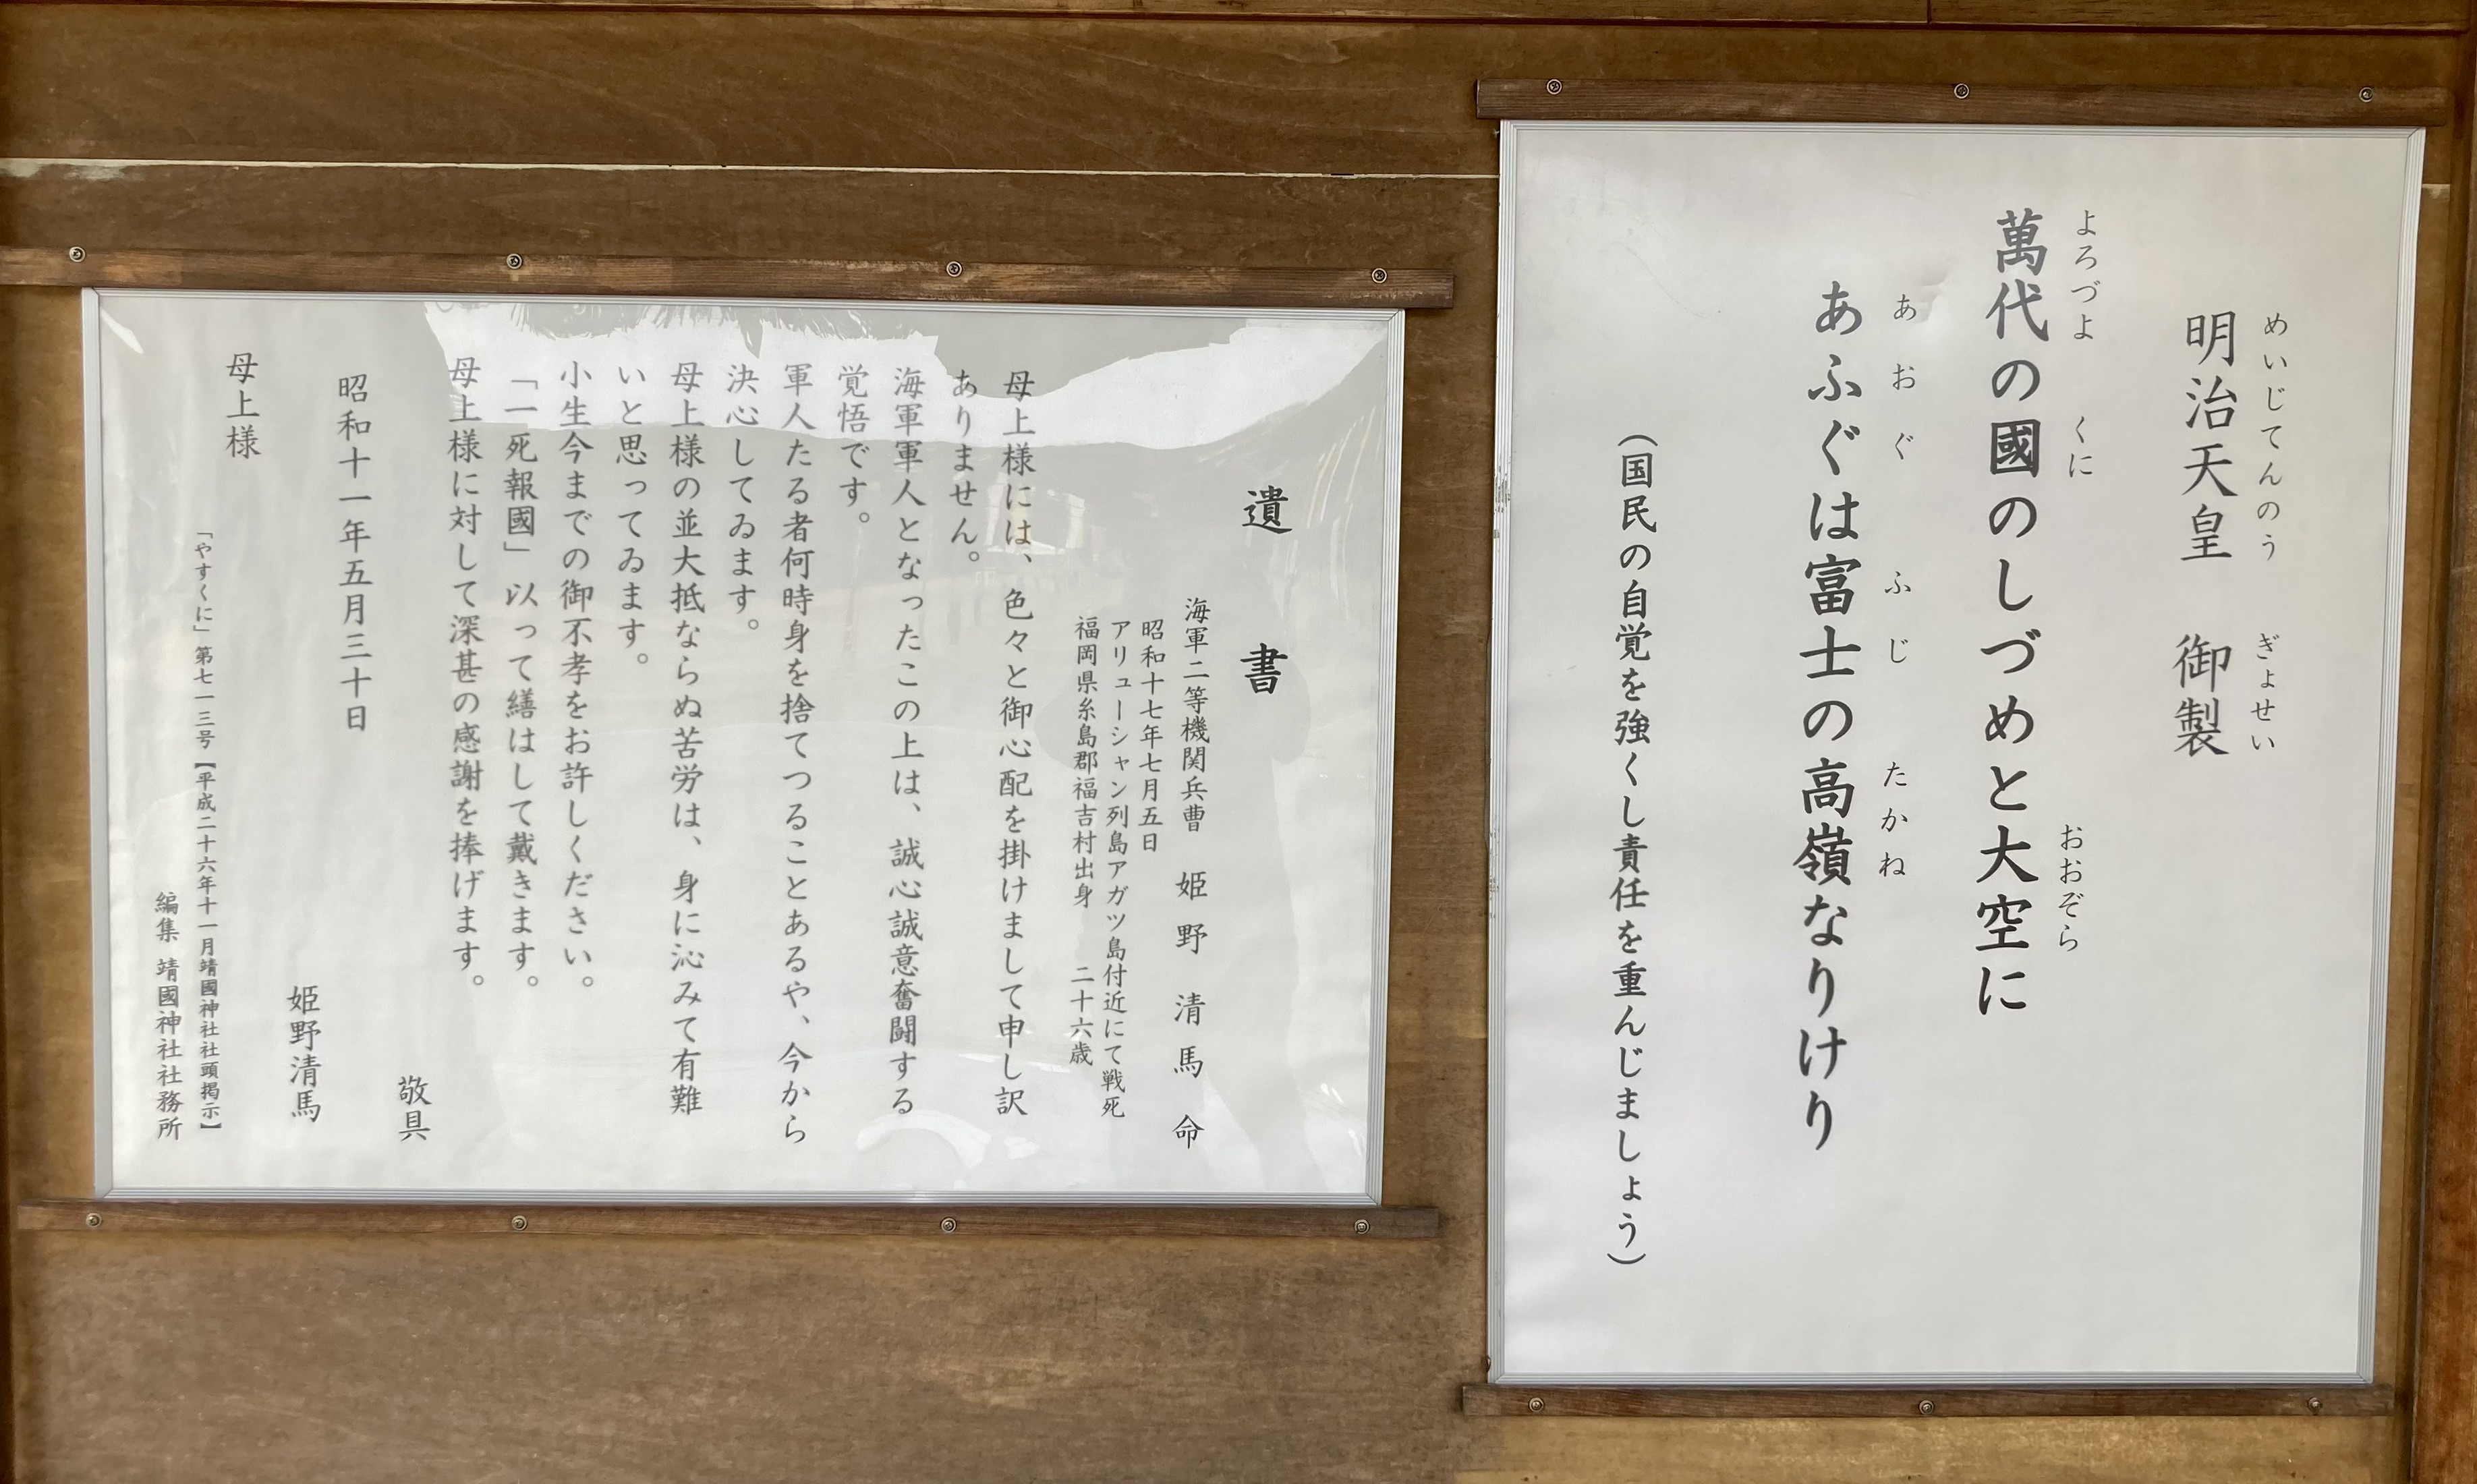 めいじてんのう ぎょせい
明治天皇 御製
よろづよ くに おおぞら
萬代の國のしづめと大空に
あおぐ ふじ たかね
あふぐは富士の高嶺なりけり
（国民の自覚を強くし責任を重んじましょう）
遺書
海軍二等機関兵曹 姫野清馬命
昭和十七年七月五日
アリューシャン列島アガツ島付近にて戦死
福岡県糸島郡福吉村出身 二十六歳
母上様には、色々と御心配を掛けまして申し訳
ありません。
海軍軍人となったこの上は、誠心誠意奮闘する
覚悟です。
軍人たる者何時身を捨てつることあるや、今から
決心してゐます。
母上様の並大抵ならぬ苦労は、身に沁みて有難
いと思ってゐます。
小生今までの御不孝をお許しください。
「一死報國」以って繕はして戴きます。
母上様に対して深甚の感謝を捧げます。
敬具
昭和十一年五月三十日
姫野清馬
母上様
「やすくに」第七一三号【平成二十六年十一月靖國神社社頭掲示】
編集 靖國神社社務所